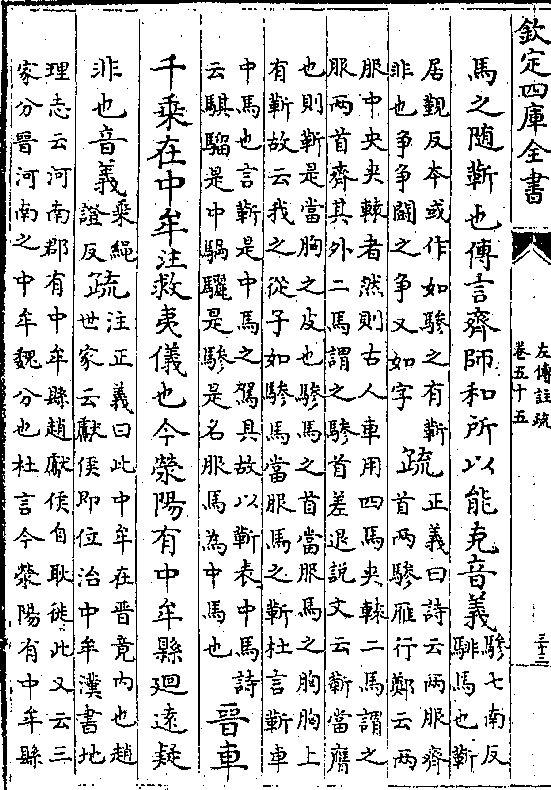 欽定四庫全書
左傳註疏
卷五十五
三十三
馬之随靳也傳言齊師和所以能克音義
驂七南反
騑馬也靳
居覲反本或作如驂之有靳
非也争争鬬之争又如字
疏
正義曰詩云兩服齊
首兩驂雁行鄭云兩
服中央夾轅者然則古人車用四馬夾轅二馬謂之
服兩首齊其外二馬謂之驂首差退説文云靳當膺
也則靳是當胸之皮也驂馬之首當服馬之胸胸上
有靳故云我之從子如驂馬當服馬之靳杜言靳車
中馬也言靳是中馬之駕具故以靳表中馬詩
云騏駵是中騧驪是驂是名服馬為中馬也
晉車
千乘在中牟注救夷儀也今滎陽有中牟縣廻遠疑
非也音義
乘繩
證反
疏
注正義曰此中牟在晉竟内也趙
世家云獻侯即位治中牟漢書地
理志云河南郡有中牟縣趙獻侯自耿徙此又云三
家分晉河南之中牟魏分也杜言今滎陽有中牟縣